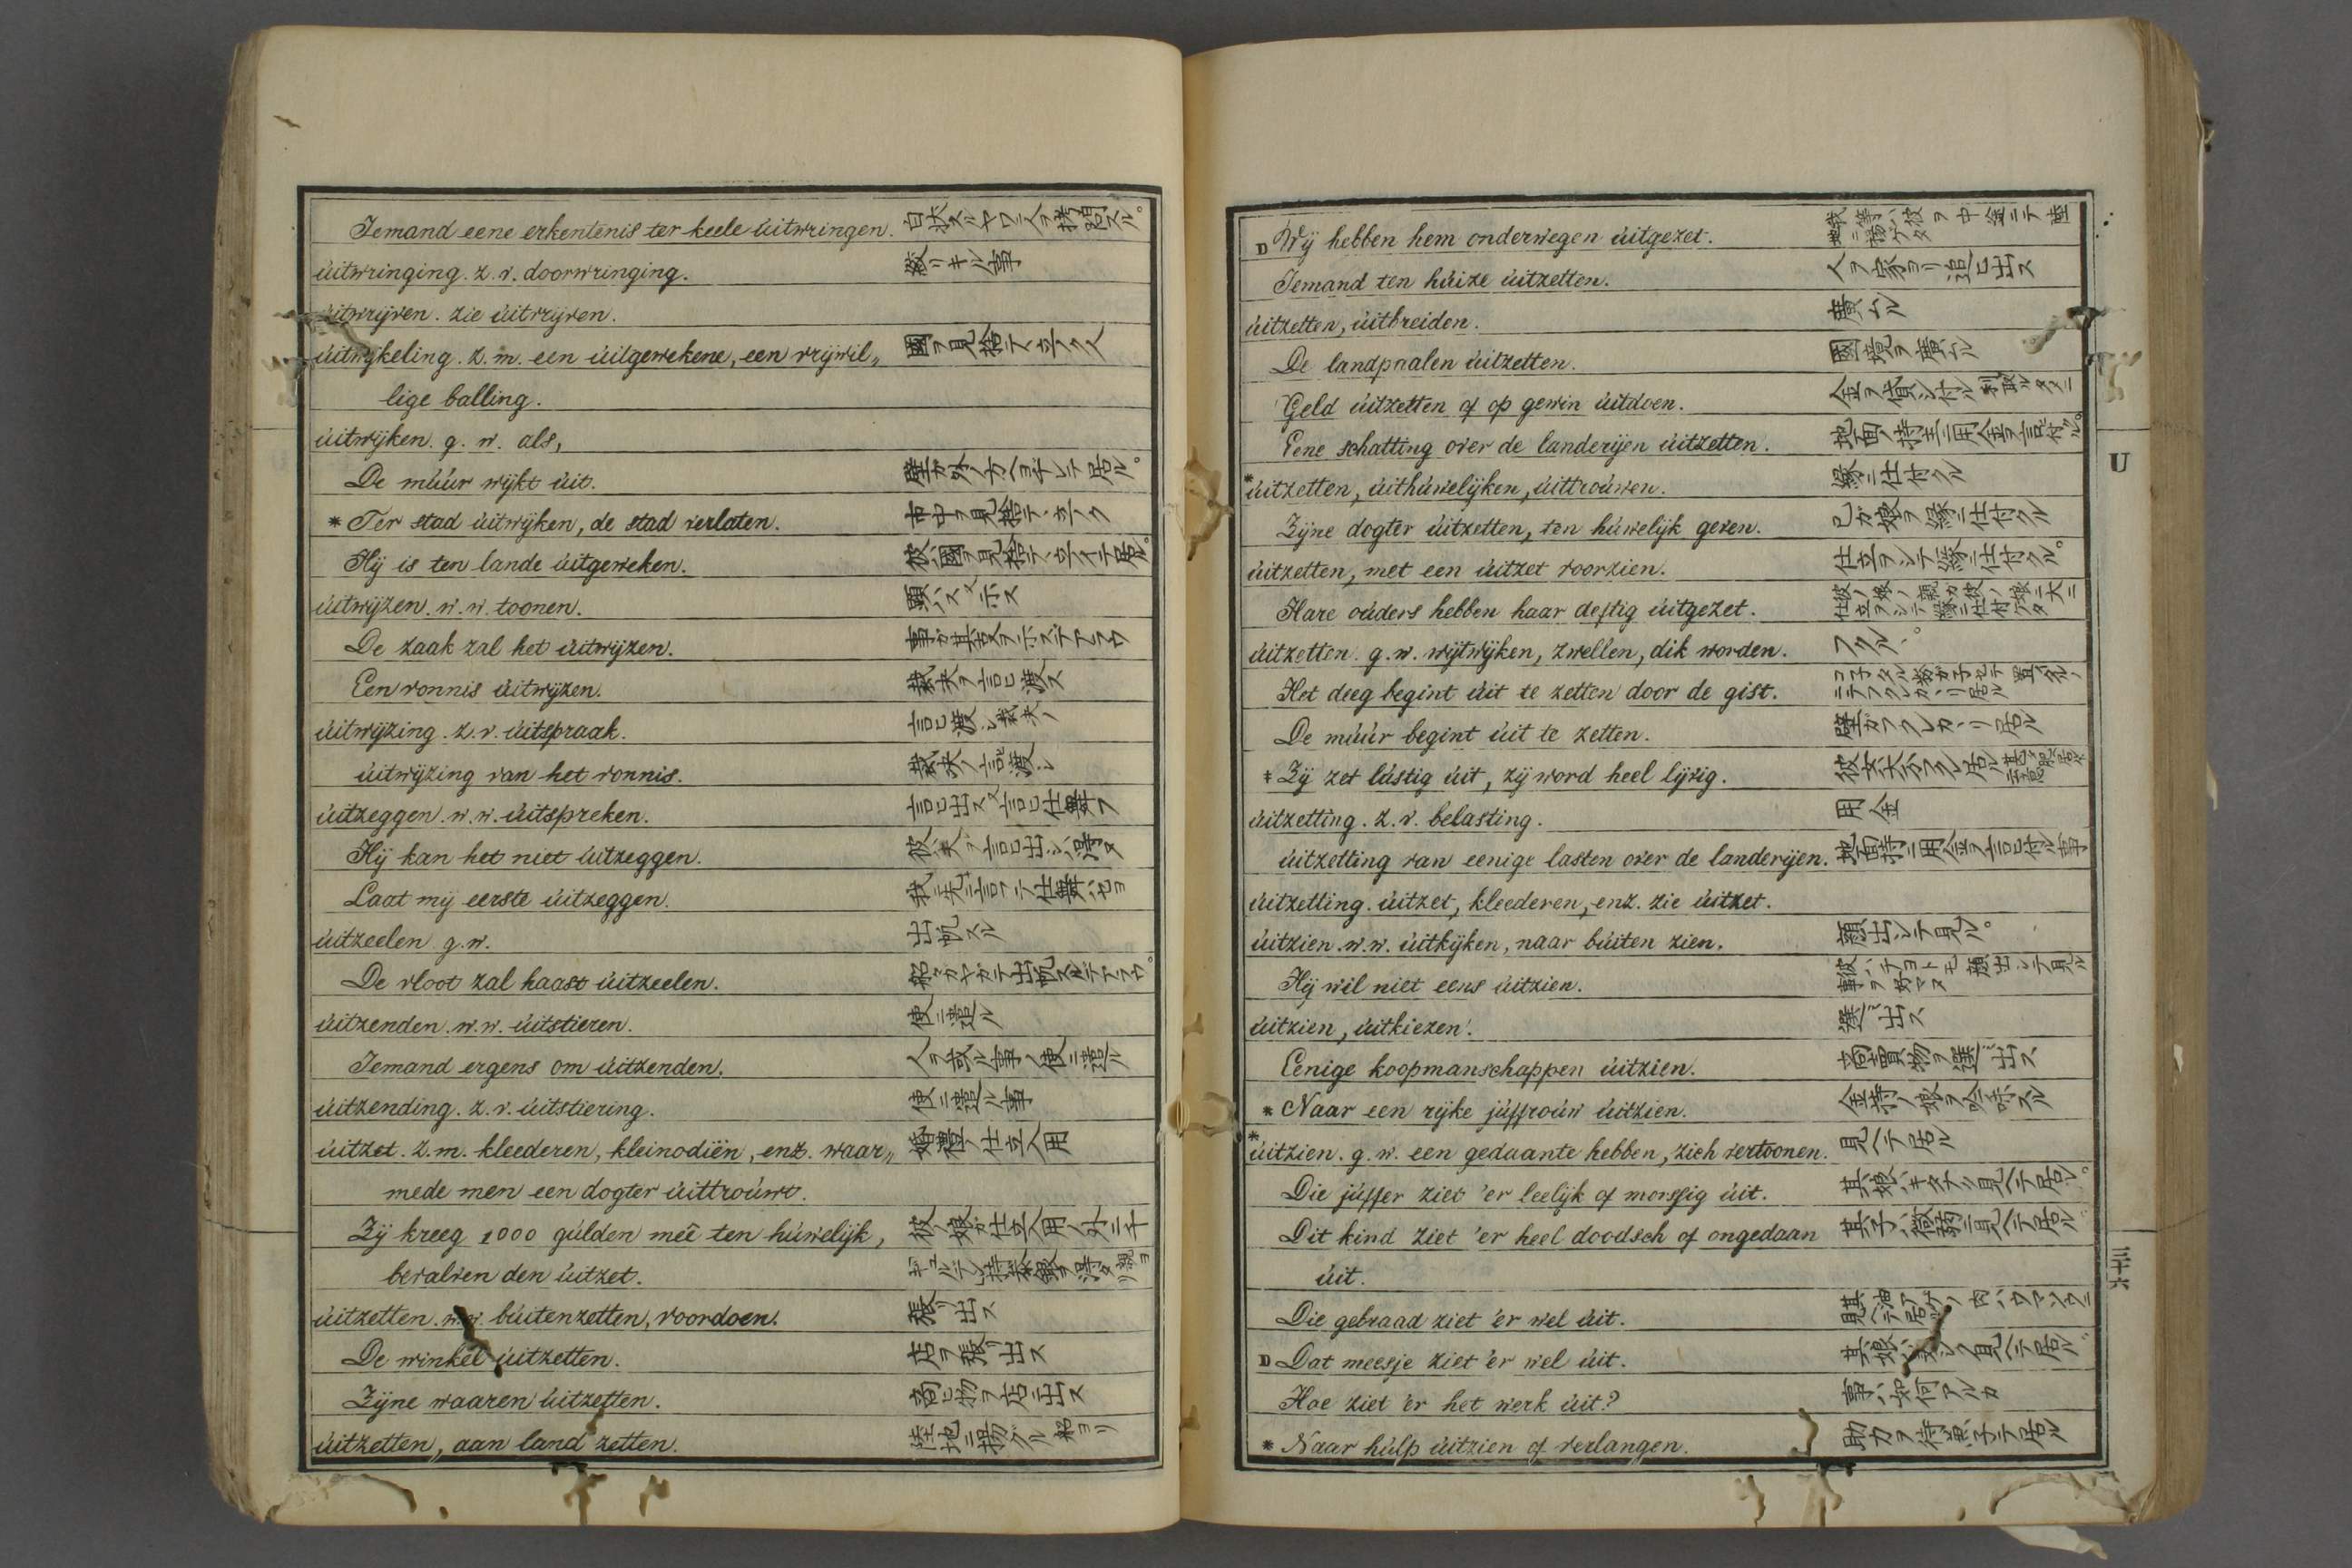 Iemand eene erkentenis ter keele úitwringen. 白状スルヤウニ人ヲ拷問スル。
úitwringing. z. v. doorwringing. 絞リキル事
úitwrijven. zie úitvrijven.
úitwijkeling. z. m. een úitgewekene, een vrijwil„ 國ヲ見捨テ立ノク人
lige balling.
úitwijken. g. w. als,
De múúr wijkt úit. 壁ガ外ノ方ヘヨギレテ居ル。
* Ter stad úitwijken, de stad verlaten. 市中ヲ見捨テ、立ノク
Hij is ten lande úitgeweken. 彼ハ國ヲ見捨テ、立ノイテ居ル。
úitwijzen. w. w. toonen. 顕ハス又示ス
De zaak zal het úitwijzen. 事ガ其レヲ示スデアラウ
Een vonnis úitwijzen. 裁决ヲ言ヒ渡ス
úitwijzing. z. v. úitspraak. 言ヒ渡シ裁决ノ
úitwijzing van het vonnis. 裁决ノ言ヒ渡シ
úitzeggen. w. w. úitspreken. 言ヒ出ス又言ヒ仕舞フ
Hij kan het niet úitzeggen. 彼ハ夫ヲ言ヒ出シ得ヌ
Laat mij eerste úitzeggen. 我ニ先ニ言フテ仕舞ハセヨ
úitzeelen. g. w. 出帆スル
De vloot zal haast úitzeelen. 船ガヤガテ出帆スルデアラウ。
úitzenden. w. w. úitstieren. 使ニ遣ル
Iemand ergens om úitzenden. 人ヲ或ル事ノ使ニ遣ル
úitzending. z. v. úitstiering. 使ニ遣ル事
úitzet. z. m. kleederen, kleinodiën, enz. waar„ 婚禮ノ仕立入用
mede men een dogter úittroúwt.
Zij kreeg 1000 gúlden meê ten húwelijk, 彼ノ娘ガ仕立入用ノ外ニ千
bevalven den úitzet.
úitzetten. w. w. búitenzetten, voordoen. 張リ出ス
De winkel úitzetten. 店ヲ張リ出ス
Zijne waaren úitzetten. 商ヒ物ヲ店ニ出ス
úitzetten, aan land zetten. 陸地ニ揚ゲル 船ヨリ
D Wij hebben hem onderwegen úitgezet. 我等ハ彼ヲ中途ニテ陸地ニ揚ゲタ
Iemand ten húize úitzetten. 人ヲ家ヨリ追ヒ出ス
úitzetten, úitbreiden. 廣ムル
De landpaalen úitzetten. 國境ヲ廣ムル
Geld úitzetten of op gewin úitdoen. 金ヲ貸シ付ル 利ヲ取ルタメニ
Eene schatting over de landerijen úitzetten. 地面ノ持主ニ用金ヲ言ヒ付ル。
* úitzetten, úithúwelijken, úittroúwen. 縁ニ仕付クル
Zijne dogter úitzetten, ten húwelijk geven. 己ガ娘ヲ縁ニ仕付クル
úitzetten, met een úitzet voorzien. 仕立ヲシテ縁ニ仕付クル。
Hare oúders hebben haar deftig úitgezet. 彼ノ娘ノ親ガ彼ノ娘ニ大ニ仕立ヲシテ縁ニ仕付ケタ
úitzetten. g. w. wijtwijken, zwellen, dik worden. フクル、。
Het deeg begint úit te zetten door de gist.
De múúr begint úit te zetten. 壁ガフクレカヽリ居ル
* Zij zet lústig úit, zij word heel lijvig.
úitzetting. z. v. belasting. 用金
úitzetting van eenige lasten over de landerijen. 地面持ニ用金ヲ言ヒ付ル事
úitzetting. úitzet, kleederen, enz. zie úitzet.
úitzien. w. w. úitkijken, naar búiten zien. 顔出シテ見ル。
Hij wil niet eens úitzien. 彼ハチヨトモ顔出シテ見ル事ヲ好マヌ
úitzien, úitkiezen. 選ミ出ス
Eenige koopmanschappen úitzien. 商賣物ヲ選ミ出ス
* Naar een rijke júffroúw úitzien. 金持ノ娘ヲ吟味スル
* úitzien. g. w. een geduante hebben, zich vertoonen. 見ヘテ居ル
Die júffer ziet 'er leelijk of morssig úit. 其娘ハキタナク見ヘテ居ル。
Dit kind ziet 'er heel doodsch of ongedaan 其子ハ微弱ニ見ヘテ居ル
úit.
Die gebraad ziet 'er wel úit. 其油アゲノ肉ハウマソフニ見ヘテ居ル
D Dat meesje ziet 'er wel úit. 其娘ハ美シク見ヘテ居ル
Hoe ziet 'er het werk úit? 事ハ如何アルカ
* Naar húlp úitzien of verlangen. 助力ヲ待兼子テ居ル
U
三十六